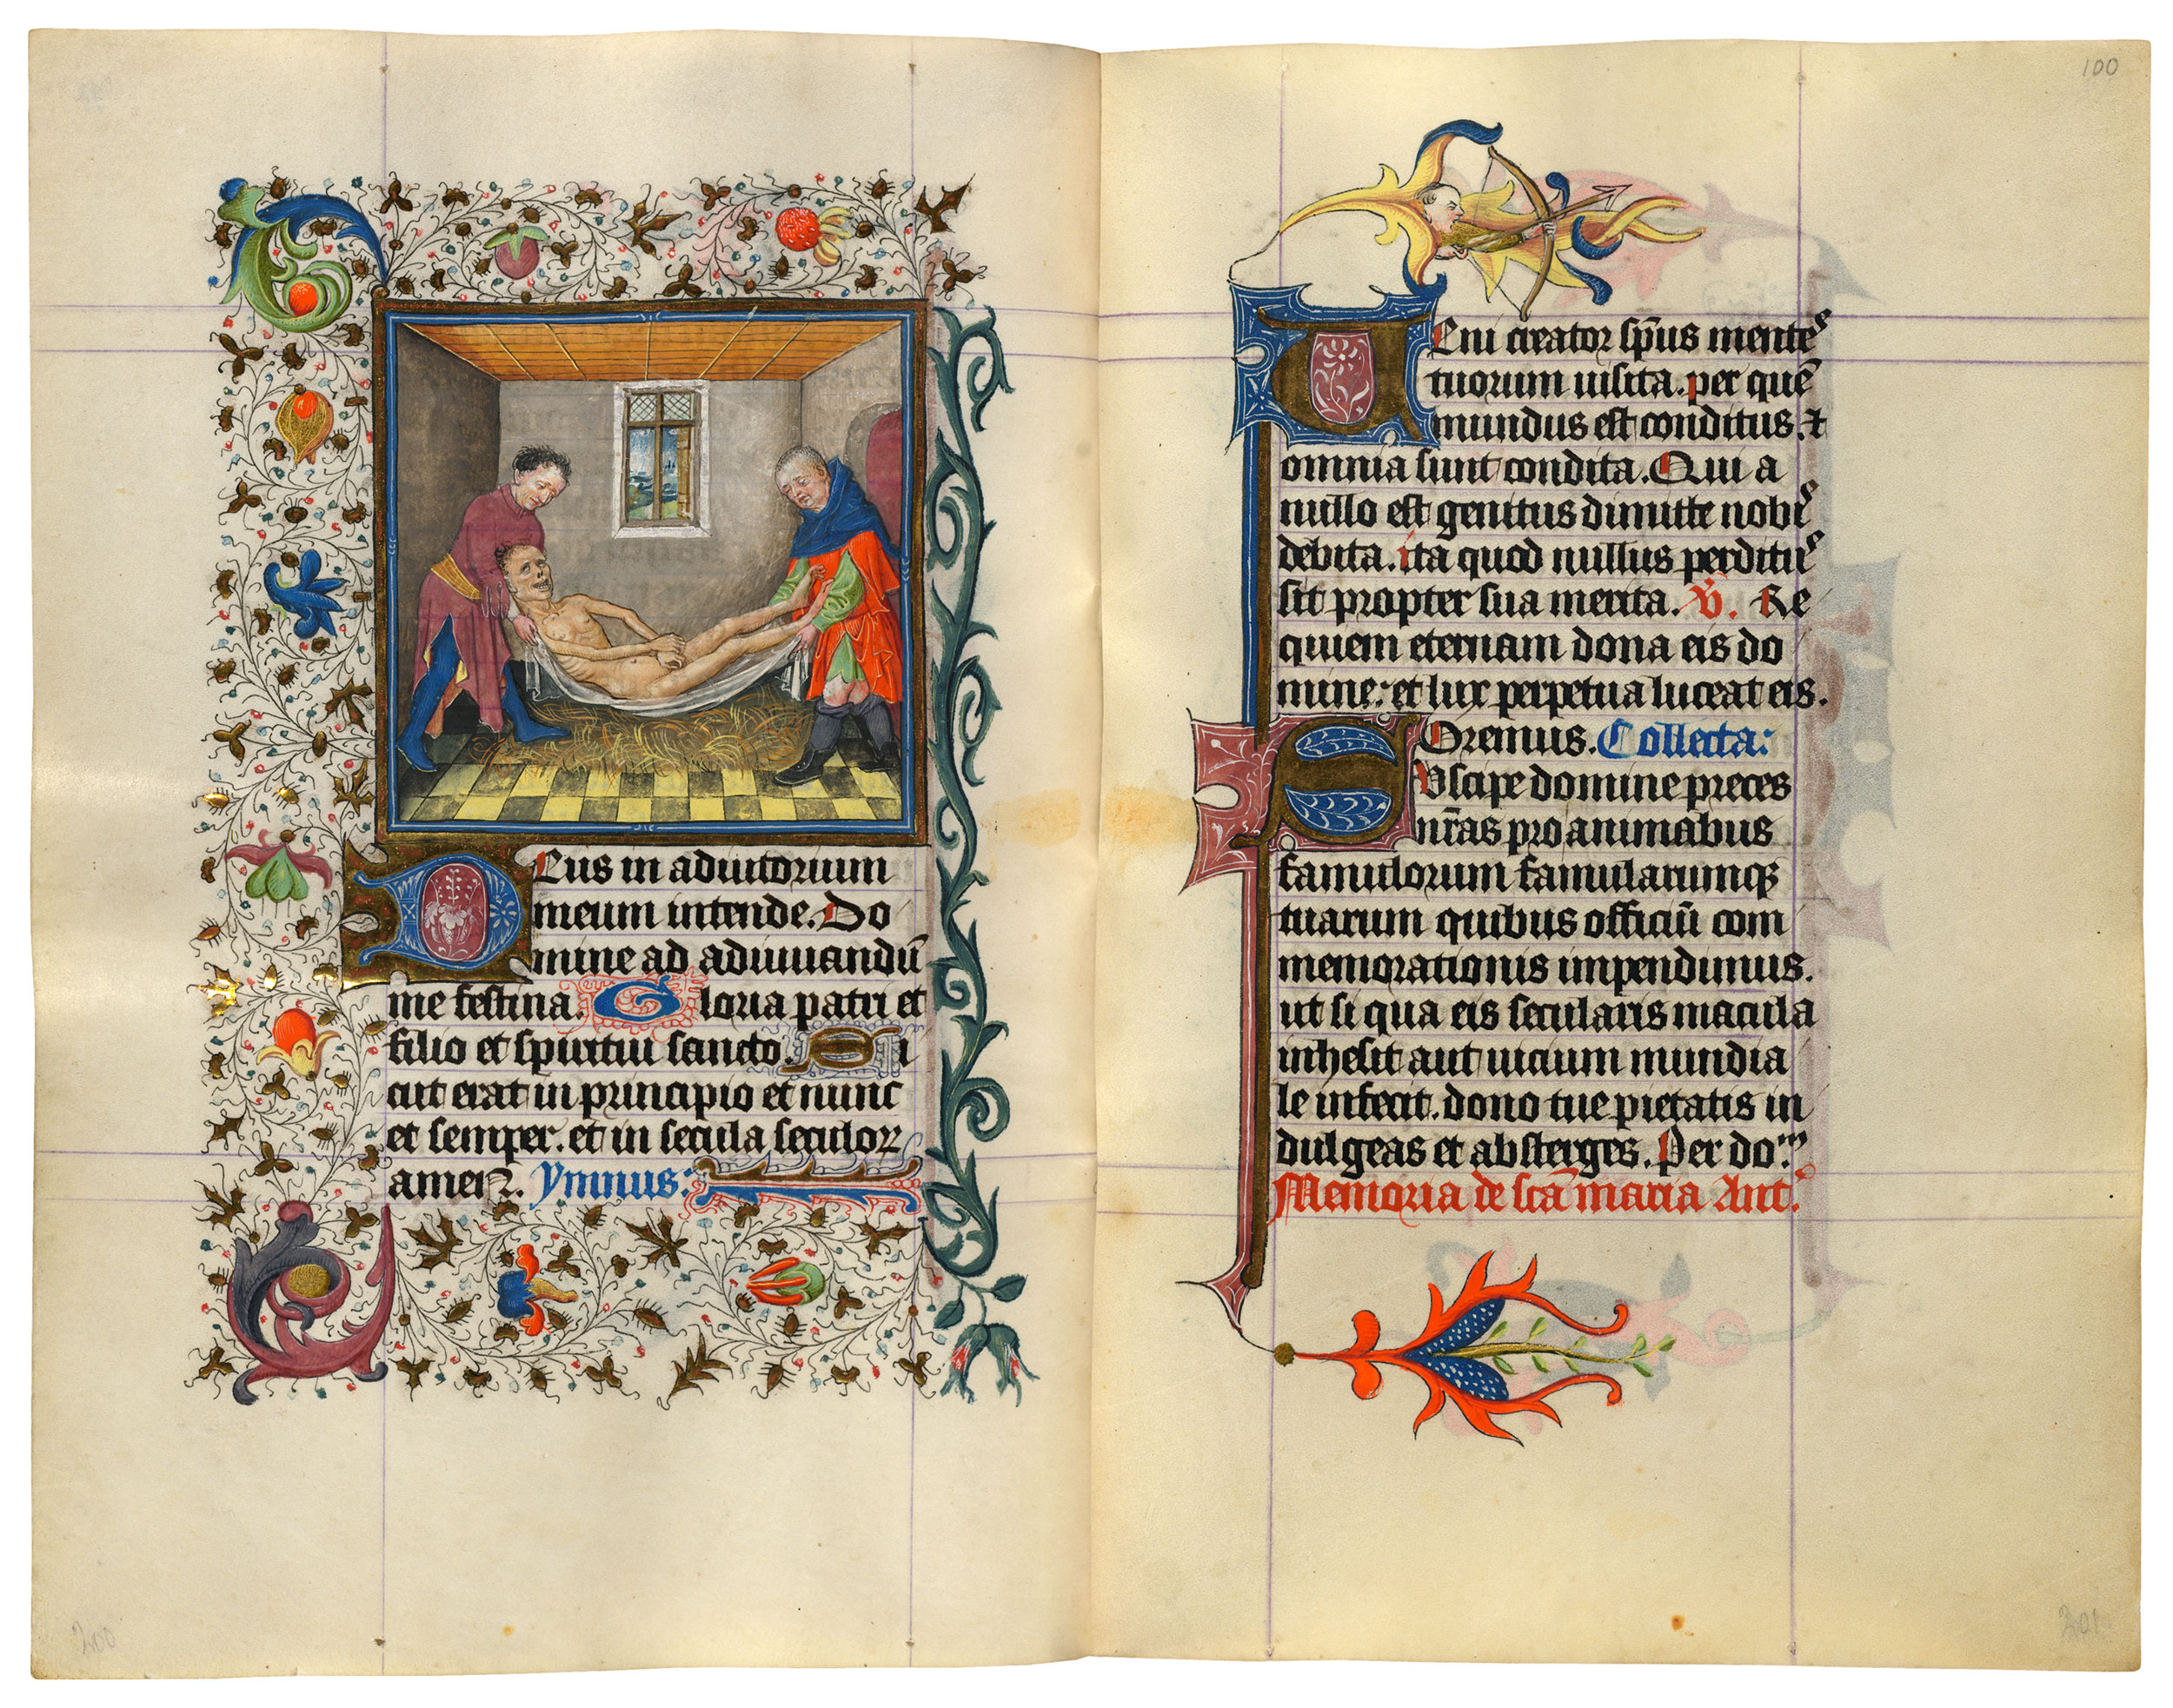 Deus in adiutorium
meum intende. Do
mine ad adiuuandū
me festina. Gloria patri et
filio et spiritui sancto. Si
cut erat in principio et nunc
et semper. et in secula seculoꝝ
amen. Ymnus:
200
100
Ueni creator sp̄us mente᷒
tuorum uisita. per quē
mundus est conditus. ⁊
omnia sunt condita. Qui a
nullo est genitus dimitte nobi᷒
debita. ita quod nullus perditu᷒
sit propter sua merita. V̉. Re
quiem eternam dona eis do
mine: et lux perpetua luceat eis.
Oremus. Collecta:
Suscipe domine preces
nr̄as pro animabus
famulorum famularumqꝫ
tuarum quibus officiū com
memorationis impendimus.
ut si qua eis secularis macula
inhesit aut uicium mundia
le infecit. dono tue pietatis in
dulgeas et absterges. Per do᷒m
Memoria de scā maria Ant᷒.
201